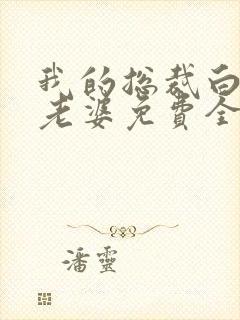 我的总裁白
老婆免费全
潘靈